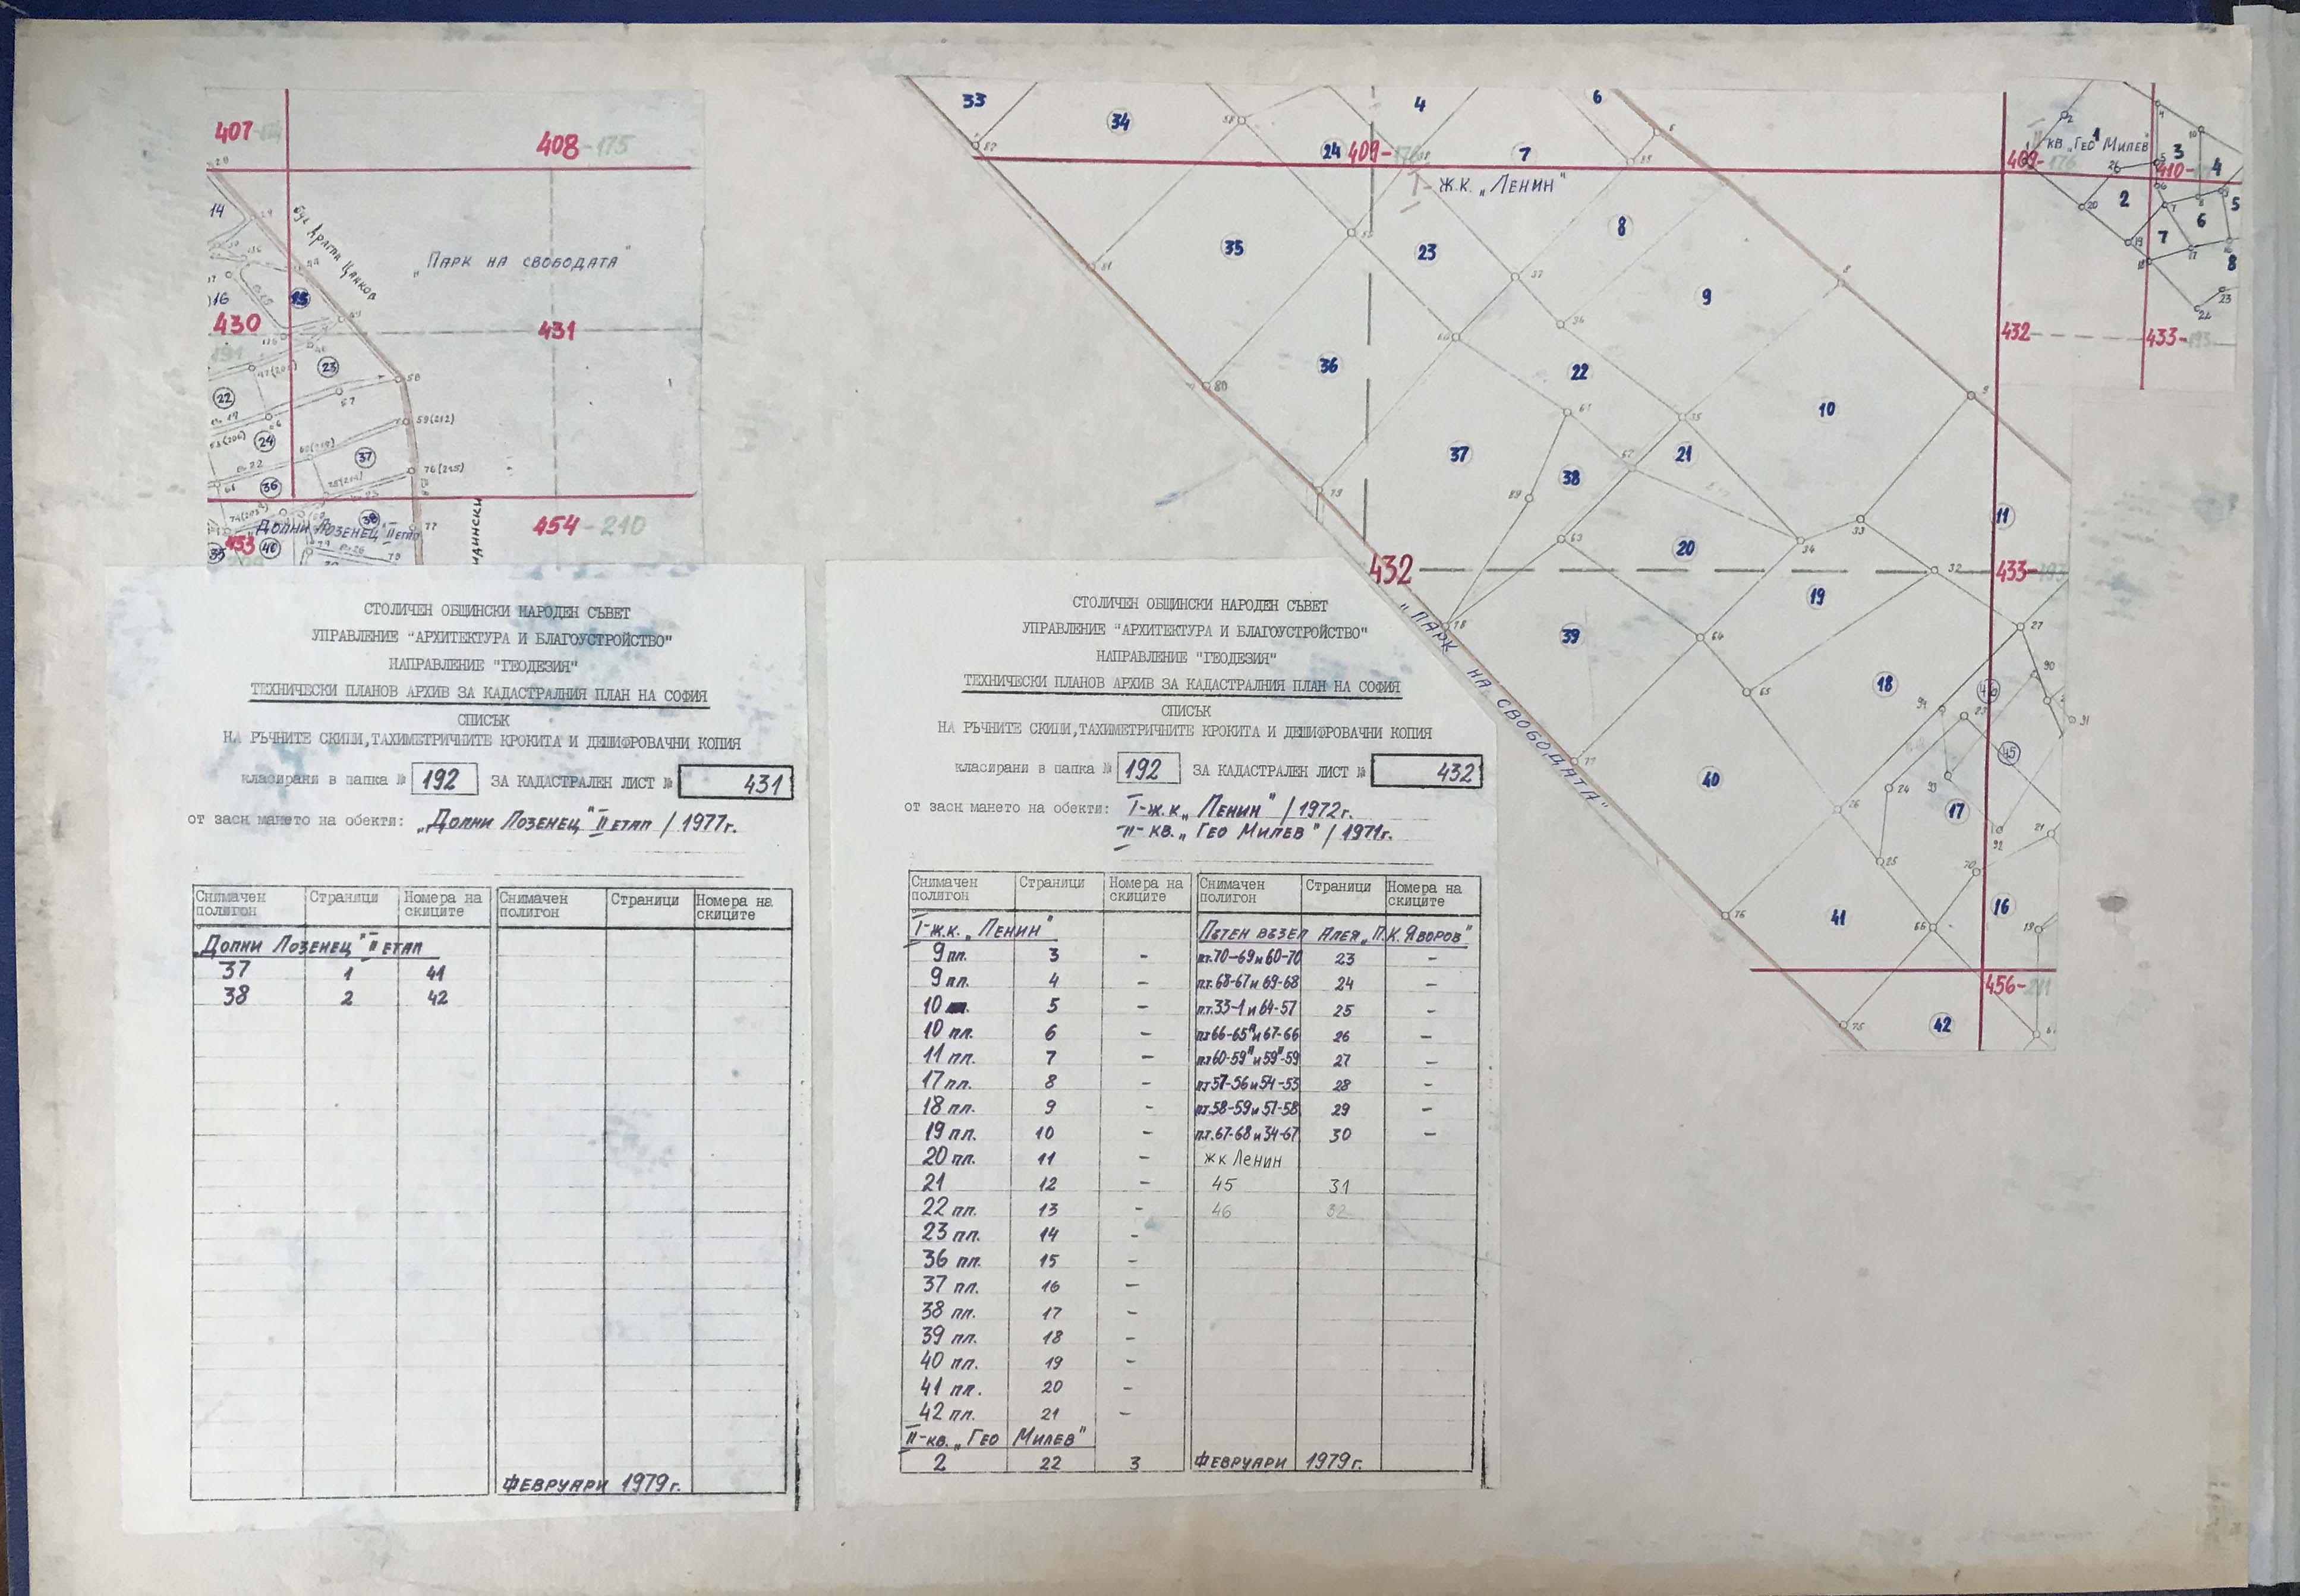 407-174
408-175
28
14
29
бул. Драган Цанков
"Парк на свободата"
16
15
430
431
23
58
22
57
59(212)
24
37
76(215)
36
454-210
38
77
"Долни Лозенец" II етап
35
453
40
33
34
4
6
24
409-176
7
I- ж.к. "Ленин"
8
35
23
9
36
22
10
37
38
21
20
11
432
433-193
19
39
18
"Парк на свободата"
46
45
40
17
41
16
456-211
42
кв. "Гео Милев"
1
3
4
409-176
410-
2
5
6
7
8
432
433-193
СТОЛИЧЕН ОБЩИНСКИ НАРОДЕН СЪВЕТ
УПРАВЛЕНИЕ "АРХИТЕКТУРА И БЛАГОУСТРОЙСТВО"
НАПРАВЛЕНИЕ "ГЕОДЕЗИЯ"
ТЕХНИЧЕСКИ ПЛАНОВ АРХИВ ЗА КАДАСТРАЛНИЯ ПЛАН НА СОФИЯ
СПИСЪК
НА РЪЧНИТЕ СКИЦИ, ТАХИМЕТРИЧНИТЕ КРОКИТА И ДЕШИФРОВАЧНИ КОПИЯ
класирани в папка № 192 ЗА КАДАСТРАЛЕН ЛИСТ № 431
от заснимането на обекти: "Долни Лозенец" II етап / 1977г.
Снимачен полигон Страници Номера на скиците Снимачен полигон Страници Номера на скиците
"Долни Лозенец" II етап
37 1 41
38 2 42
ФЕВРУАРИ 1979г.
СТОЛИЧЕН ОБЩИНСКИ НАРОДЕН СЪВЕТ
УПРАВЛЕНИЕ "АРХИТЕКТУРА И БЛАГОУСТРОЙСТВО"
НАПРАВЛЕНИЕ "ГЕОДЕЗИЯ"
ТЕХНИЧЕСКИ ПЛАНОВ АРХИВ ЗА КАДАСТРАЛНИЯ ПЛАН НА СОФИЯ
СПИСЪК
НА РЪЧНИТЕ СКИЦИ, ТАХИМЕТРИЧНИТЕ КРОКИТА И ДЕШИФРОВАЧНИ КОПИЯ
класирани в папка № 192 ЗА КАДАСТРАЛЕН ЛИСТ № 432
от засн мането на обекти: I-ж.к. "Ленин" / 1972г.
II- кв. "Гео Милев" / 1971г.
Снимачен полигон Страници Номера на скиците Снимачен полигон Страници Номера на скиците
I-ж.к. "Ленин" Пътен възел Алея "П.К. Яворов"
9 пл. 3 - пт.70-69 и 60-70 23 -
9 пл. 4 - пт.68-67 и 69-68 24 -
10 пл. 5 - пт.33-1 и 64-57 25 -
10 пл. 6 - пт 66-65ª и 67-66 26 -
11 пл. 7 - пт 60-59ª и 59ª-59 27 -
17 пл. 8 - пт 57-56 и 54-53 28 -
18 пл. 9 - пт.58-59 и 57-58 29 -
19 пл. 10 - пт.67-68 и 34-67 30 -
20 пл. 11 - жк Ленин
21 12 - 45 31
22 пл. 13 - 46 32
23 пл. 14 -
36 пл. 15 -
37 пл. 16 -
38 пл. 17 -
39 пл. 18 -
40 пл. 19 -
41 пл. 20 -
42 пл. 21 -
II-кв. "Гео Милев"
2 22 3 ФЕВРУАРИ 1979г.